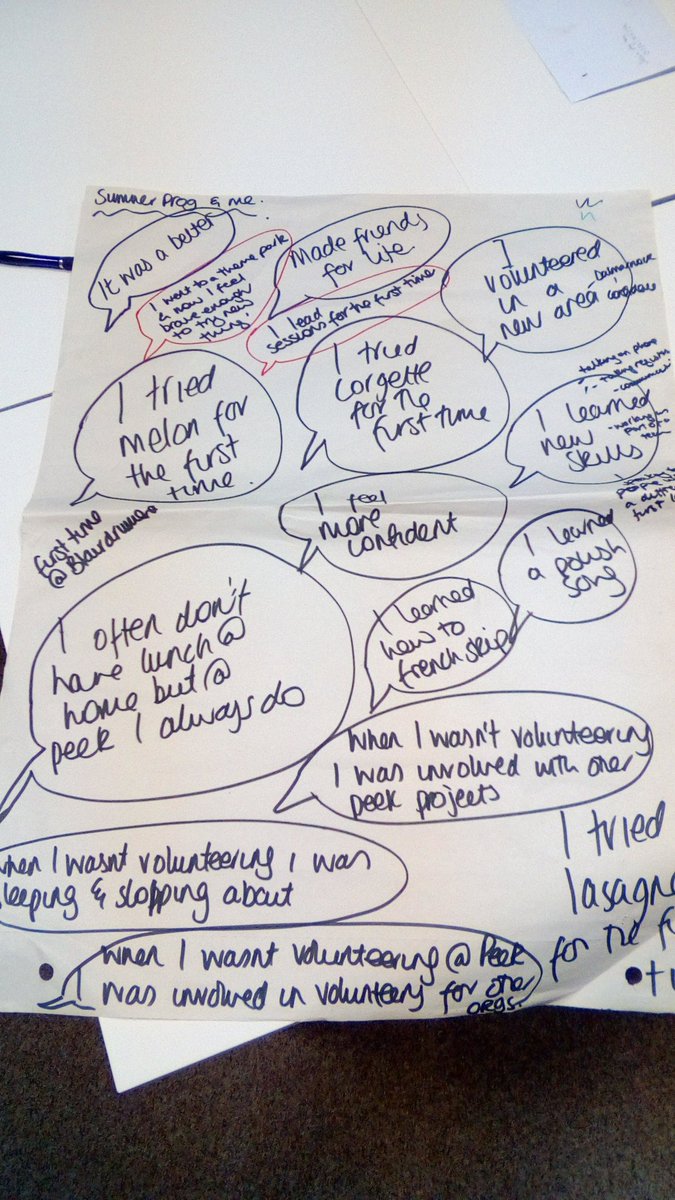 Summer Prog & me.
It was a better
I went to a theme park
& now I feel
brave enough
to try new
things'
Made friends
for life.
I lead
sessions for the first time
I
volunteered
in a
new area
Dalmarnock
I tried
melon for
the first
time.
I tried
corgette
for the
first time
I learned
new
skills
talking on phone
- taking registers
- working as
part of a
team
first time
@ Blairdrummond
I feel
more
confident
I learned
a polish
song
I learned
how to
french skip
I often don't
have lunch @
home but @
peek I always do
when I wasn't volunteering
I was involved with other
peek projects
when I wasnt volunteering I was
sleeping & slopping about
I tried
lasagne
for the
when I wasnt volunteering @ Peek
I was involved in volunteering for other
orgs.